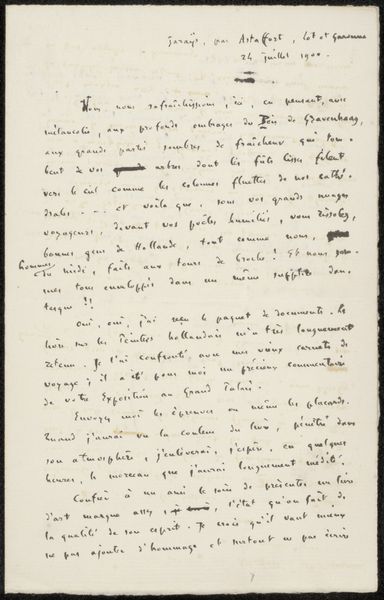 Garaÿs, par Astaffort, Lot et Garonne
24 juillet 1900.
Nous nous rafraîchissions, ici, en pensant, avec
mélancolie, aux profonds ombrages du Bois de Gravenhaag,
aux grands partis sombres de fraîcheur qui tom-
bent de vos arbres, dont les fûts lisses filent
vers le ciel comme les colonnes fluettes de nos cathé-
drales - - - et voilà que, sous vos grands nuages
voyageurs, devant vos poëles humiliés, vous rissolez,
bonnes gens de Hollande, tout comme nous,
hommes du midi, faits aux tours de broche ! Et nous som-
mes tous enveloppés dans un même supplice dan-
tesque !!
Oui, oui, j'ai reçu le paquet de documents. Le
livre sur les Peintres hollandais m'a très longuement
retenu. Je l'ai confronté avec mes vieux carnets de
voyage & il a été pour moi un précieux commentaire
de votre Exposition au Grand Palais.
Envoyez moi les épreuves ou même les placards.
Quand j'aurai vu la couleur du livre, pénétré dans
son atmosphère, j'enlèverai, j'espère, en quelques
heures, le morceau que j'aurai longuement médité.
Confier à un ami le soin de présenter un livre
d'art marque assez, l'état qu'on fait de
la qualité de son esprit. Je crois qu'il vaut mieux
ne pas ajouter d'hommage et surtout ne pas écrire